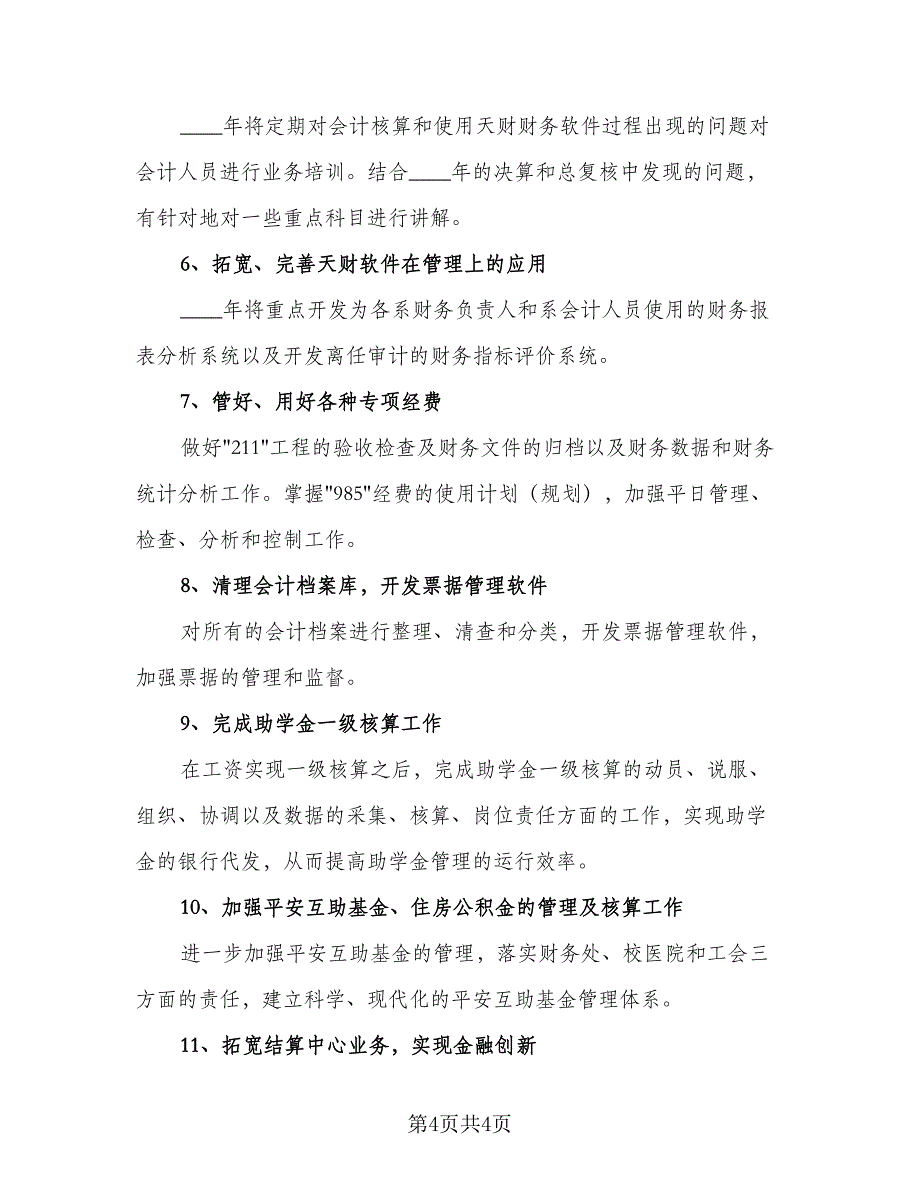 ____年将定期对会计核算和使用天财财务软件过程出现的问题对
会计人员进行业务培训。结合____年的决算和总复核中发现的问题，
有针对地对一些重点科目进行讲解。
6、拓宽、完善天财软件在管理上的应用
____年将重点开发为各系财务负责人和系会计人员使用的财务报
表分析系统以及开发离任审计的财务指标评价系统。
7、管好、用好各种专项经费
做好"211"工程的验收检查及财务文件的归档以及财务数据和财务
统计分析工作。掌握"985"经费的使用计划（规划），加强平日管理、
检查、分析和控制工作。
8、清理会计档案库，开发票据管理软件
对所有的会计档案进行整理、清查和分类，开发票据管理软件，
加强票据的管理和监督。
9、完成助学金一级核算工作
在工资实现一级核算之后，完成助学金一级核算的动员、说服、
组织、协调以及数据的采集、核算、岗位责任方面的工作，实现助学
金的银行代发，从而提高助学金管理的运行效率。
10、加强平安互助基金、住房公积金的管理及核算工作
进一步加强平安互助基金的管理，落实财务处、校医院和工会三
方面的责任，建立科学、现代化的平安互助基金管理体系。
11、拓宽结算中心业务，实现金融创新
第4页共4页